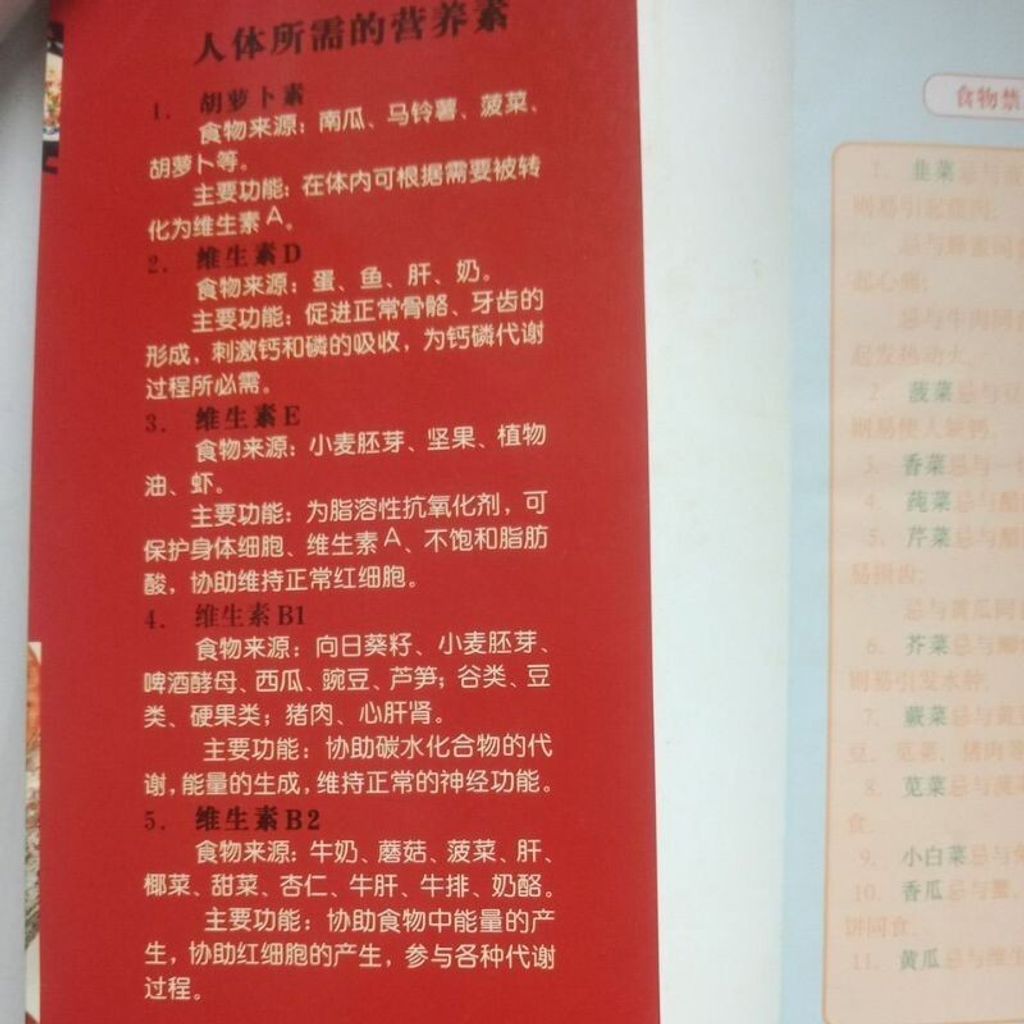 人体所需的营养素
1. 胡萝卜素
食物来源：南瓜、马铃薯、菠菜、
胡萝卜等。
主要功能：在体内可根据需要被转
化为维生素A。
2. 维生素D
食物来源：蛋、鱼、肝、奶。
主要功能：促进正常骨骼、牙齿的
形成，刺激钙和磷的吸收，为钙磷代谢
过程所必需。
3. 维生素E
食物来源：小麦胚芽、坚果、植物
油、虾。
主要功能：为脂溶性抗氧化剂，可
保护身体细胞、维生素A、不饱和脂肪
酸，协助维持正常红细胞。
4. 维生素B1
食物来源：向日葵籽、小麦胚芽、
啤酒酵母、西瓜、豌豆、芦笋；谷类、豆
类、硬果类；猪肉、心肝肾。
主要功能：协助碳水化合物的代
谢，能量的生成，维持正常的神经功能。
5. 维生素B2
食物来源：牛奶、蘑菇、菠菜、肝、
椰菜、甜菜、杏仁、牛肝、牛排、奶酪。
主要功能：协助食物中能量的产
生，协助红细胞的产生，参与各种代谢
过程。
食物禁
1. 韭菜忌与
忌与蜂蜜同
忌与牛肉同
2. 菠菜忌与
3. 香菜忌与一
4. 莼菜忌与醋
5. 芹菜忌与醋
忌与黄瓜同
6. 芥菜忌与鲫
则易引发水肿。
7. 蕨菜忌与黄
豆、苋菜、猪肉等
8. 苋菜忌与
食。
9. 小白菜忌与
10. 香瓜忌与蟹、
饼同食。
11. 黄瓜忌与维生